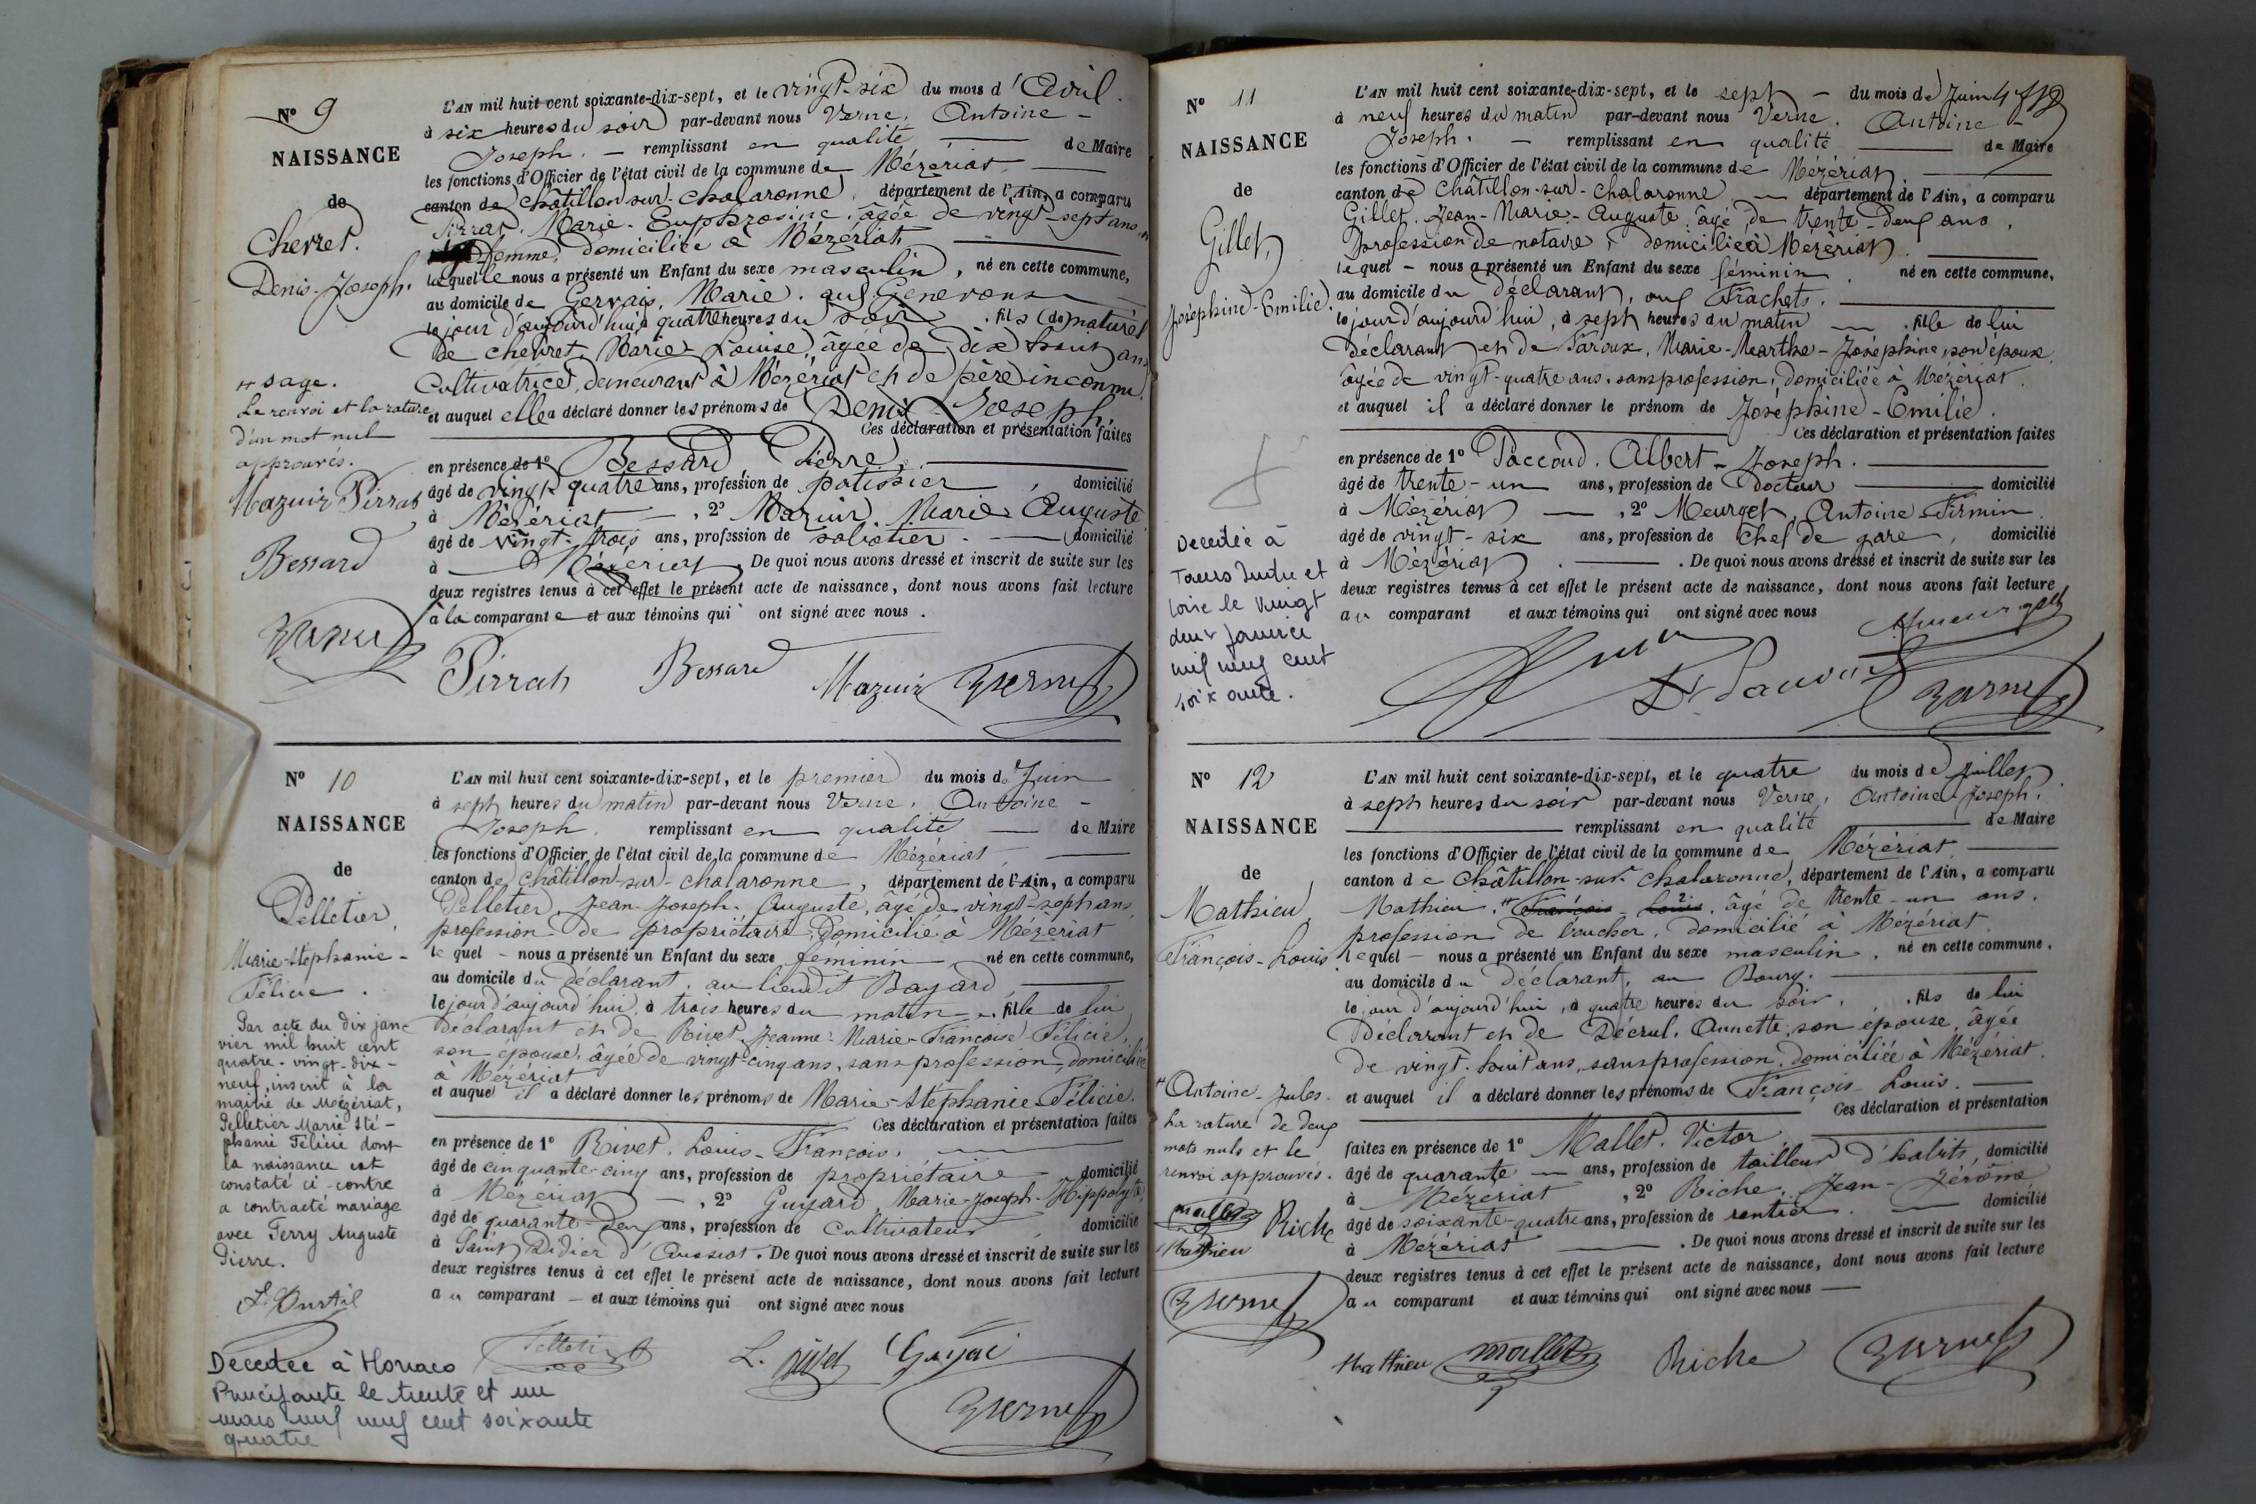 N° 9
NAISSANCE
de
Chevret.
Denis-Joseph.
L'AN mil huit cent soixante-dix-sept, et le vingt-six du mois d'Avril.
à six heures du soir par-devant nous Verne, Antoine -
Joseph. — remplissant en qualité — de Maire
les fonctions d'Officier de l'état civil de la commune de Mézériat. —
canton de Châtillon-sur-Chalaronne, département de l'Ain, a comparu
Pirrat, Marie-Euphrosine, âgée de vingt-sept ans,
femme, domiciliée à Mézériat, —
laquelle nous a présenté un Enfant du sexe masculin, né en cette commune,
au domicile de Gervais, Marie, aux Genevons —
le jour d'aujourd'hui, à quatre heures du soir, fils naturel
de Chevret, Marie-Louise, âgée de dix huit ans
cultivatrice, demeurant à Mézériat et de père inconnu.
et auquel elle a déclaré donner les prénoms de Denis-Joseph.
Ces déclaration et présentation faites
en présence de 1° Bessard Pierre, —
âgé de vingt-quatre ans, profession de patissier, domicilié
à Mézériat —, 2° Mazuir, Marie-Auguste
âgé de vingt-trois ans, profession de sabotier. — domicilié
à — Mézériat. De quoi nous avons dressé et inscrit de suite sur les
deux registres tenus à cet effet le présent acte de naissance, dont nous avons fait lecture
à la comparante et aux témoins qui ont signé avec nous.
sage.
Le renvoi et la rature
d'un mot nul
approuvés.
Mazuir Pirrat
Bessard
Verne
Pirrat Bessard Mazuir Verne
N° 10
NAISSANCE
de
Pelletier,
Marie-Stéphanie-
Félicie.
L'AN mil huit cent soixante-dix-sept, et le premier du mois de Juin
à sept heures du matin par-devant nous Verne, Antoine -
Joseph. remplissant en qualité — de Maire
les fonctions d'Officier de l'état civil de la commune de Mézériat —
canton de Châtillon-sur-Chalaronne, département de l'Ain, a comparu
Pelletier, Jean-Joseph-Auguste, âgé de vingt-sept ans,
profession de propriétaire, domicilié à Mézériat
lequel - nous a présenté un Enfant du sexe féminin, né en cette commune,
au domicile du déclarant, au lieu dit Bayard —
le jour d'aujourd'hui, à trois heures du matin, fille de lui
déclarant et de Rivet, Jeanne-Marie-Françoise-Félicie,
son épouse, âgée de vingt-cinq ans, sans profession, domiciliée
à Mézériat
et auquel il a déclaré donner les prénoms de Marie-Stéphanie-Félicie.
Ces déclaration et présentation faites
en présence de 1° Rivet, Louis-François, —
âgé de cinquante-cinq ans, profession de propriétaire — domicilié
à Mézériat —, 2° Guyard Marie-Joseph-Hippolyte,
âgé de quarante-deux ans, profession de cultivateur, domicilié
à Saint Didier d'Aussiat. De quoi nous avons dressé et inscrit de suite sur les
deux registres tenus à cet effet le présent acte de naissance, dont nous avons fait lecture
au comparant — et aux témoins qui ont signé avec nous
Par acte du dix jan-
vier mil huit cent
quatre-vingt-dix-
neuf, inscrit à la
mairie de Mézériat,
Pelletier Marie Sté-
phanie Félicie dont
la naissance est
constaté ci-contre
a contracté mariage
avec Ferry Auguste
Pierre.
Décédée à Monaco
Principauté le trente et un
mars mil neuf cent soixante
quatre
Pelletier L. Rivet Guyard
Verne
N° 11
NAISSANCE
de
Gillet,
Joséphine-Emilie.
L'AN mil huit cent soixante-dix-sept, et le sept — du mois de Juin
à neuf heures du matin par-devant nous Verne, Antoine -
Joseph. — remplissant en qualité — de Maire
les fonctions d'Officier de l'état civil de la commune de Mézériat, —
canton de Châtillon-sur-Chalaronne, — département de l'Ain, a comparu
Gillet, Jean-Marie-Auguste, âgé de trente-deux ans,
profession de notaire, domicilié à Mézériat. —
lequel - nous a présenté un Enfant du sexe féminin, né en cette commune,
au domicile du déclarant, aux Frachets. —
le jour d'aujourd'hui, à sept heures du matin —, fille de lui
déclarant et de Taroux, Marie-Marthe-Joséphine, son épouse,
âgée de vingt-quatre ans, sans profession, domiciliée à Mézériat.
et auquel il a déclaré donner le prénom de Joséphine-Emilie.
Ces déclaration et présentation faites
en présence de 1° Paccoud, Albert-Joseph. —
âgé de trente-un ans, profession de Docteur — domicilié
à Mézériat —, 2° Meurget, Antoine-Firmin
âgé de vingt-six ans, profession de chef de gare, domicilié
à Mézériat. — . De quoi nous avons dressé et inscrit de suite sur les
deux registres tenus à cet effet le présent acte de naissance, dont nous avons fait lecture
au comparant et aux témoins qui ont signé avec nous
Décédée à
Tours Indre et
Loire le vingt
deux Janvier
mil neuf cent
soixante.
Verne
N° 12
NAISSANCE
de
Mathieu,
François-Louis.
L'AN mil huit cent soixante-dix-sept, et le quatre du mois de Juillet
à sept heures du soir par-devant nous Verne, Antoine-Joseph.
— remplissant en qualité — de Maire
les fonctions d'Officier de l'état civil de la commune de Mézériat —
canton de Châtillon-sur-Chalaronne, département de l'Ain, a comparu
Mathieu, François-Louis, âgé de trente-un ans.
profession de boucher, domicilié à Mézériat.
lequel — nous a présenté un Enfant du sexe masculin, né en cette commune,
au domicile du déclarant, au Bourg. —
le jour d'aujourd'hui, à quatre heures du soir, fils de lui
Déclarant et de Décrul, Annette, son épouse, âgée
de vingt-huit ans, sans profession, domiciliée à Mézériat.
et auquel il a déclaré donner les prénoms de François-Louis. —
Ces déclaration et présentation
faites en présence de 1° Mallet, Victor, —
âgé de quarante — ans, profession de tailleur d'habits, domicilié
à Mézériat, 2° Riche, Jean-Jérôme
âgé de soixante-quatre ans, profession de rentier. — domicilié
à Mézériat — . De quoi nous avons dressé et inscrit de suite sur les
deux registres tenus à cet effet le présent acte de naissance, dont nous avons fait lecture
au comparant et aux témoins qui ont signé avec nous —
Antoine-Jules.
La rature de deux
mots nuls et le
renvoi approuvés.
Mallet Riche
Mathieu
Verne
Mathieu Mallet Riche Verne